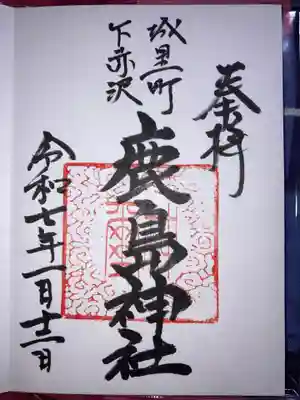 奉拝
城里町
下赤沢
鹿島神社
令和七年一月十二日